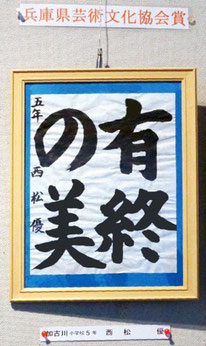 兵庫県芸術文化協会賞
有終
の美
五年 西松優
加古川小学校5年 西松 優